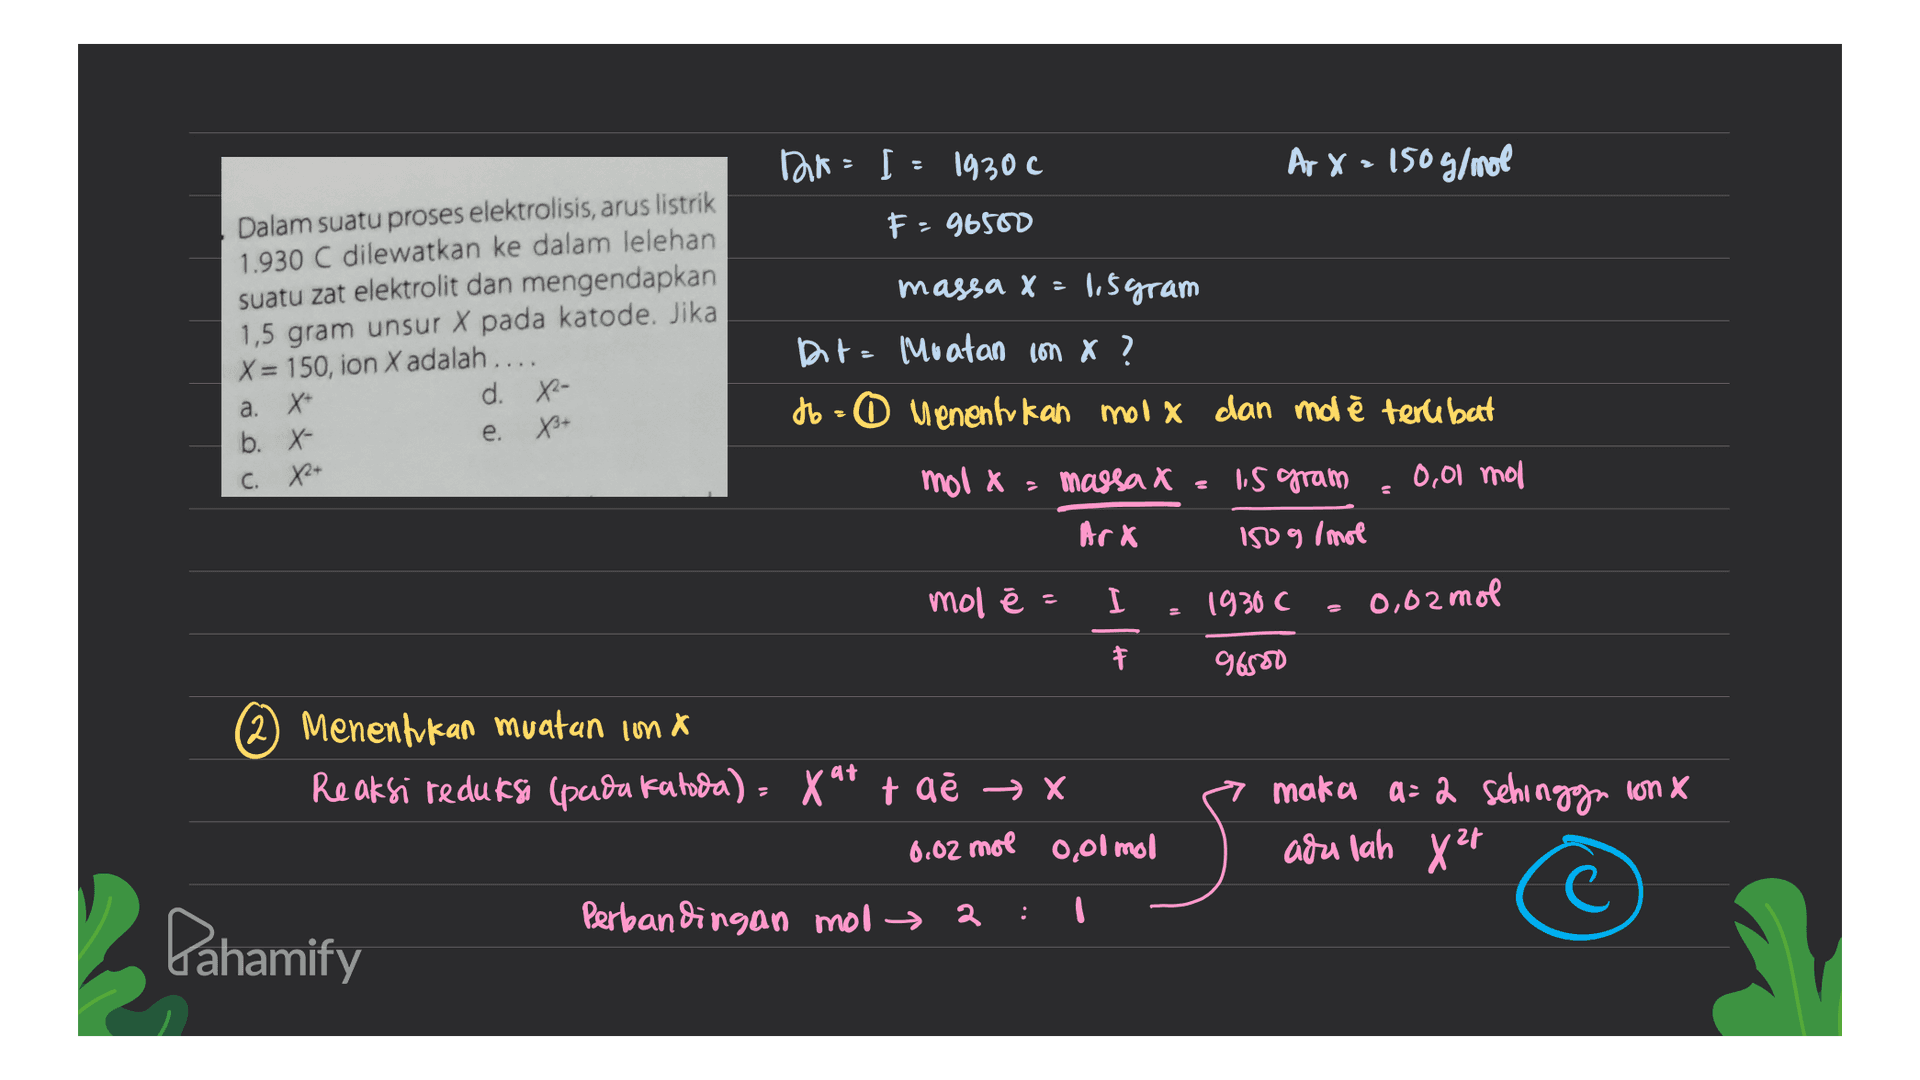 Dalam suatu proses elektrolisis, arus listrik
1.930 C dilewatkan ke dalam lelehan
suatu zat elektrolit dan mengendapkan
1,5 gram unsur X pada katode. Jika
X = 150, ion X adalah . . . .
a. X⁺ d. X²⁻
b. X⁻ e. X³⁺
c. X²⁺
Dik = I = 1930 C Ar X = 150 g/mol
F = 96500
massa X = 1,5 gram
Dit = Muatan ion X ?
Jb = ① Menentukan mol X dan mol ē terlibat
mol X = massa X = 1.5 gram = 0,01 mol
Ar X 150 g/mol
mol ē = I = 1930 C = 0,02 mol
F 96500
② Menentukan muatan ion X
Reaksi reduksi (pada katoda) = Xᵃ⁺ + aē → X
0.02 mol 0,01 mol
Perbandingan mol → 2 : 1
maka a = 2 sehingga ion X
adalah X²⁺
C
Pahamify